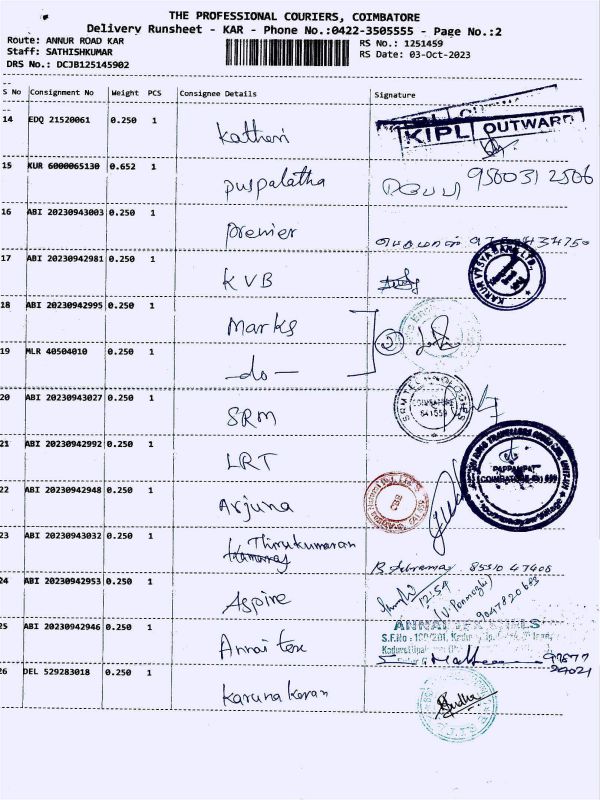 THE PROFESSIONAL COURIERS, COIMBATORE
Delivery Runsheet - KAR - Phone No.:0422-3505555 - Page No.:2
Route: ANNUR ROAD KAR
RS No.: 1251459
Staff: SATHISHKUMAR
RS Date: 03-Oct-2023
DRS No.: DCJB125145902
S No Consignment No Weight PCS Consignee Details Signature
14 EDQ 21520061 0.250 1
KIPL OUTWARD
15 KUR 6000065130 0.652 1 puspalatha 9500312506
16 ABI 20230943003 0.250 1 Premier
17 ABI 20230942981 0.250 1 KVB
KARUR VYSYA BANK LTD.
18 ABI 20230942995 0.250 1 Marks
19 MLR 40504010 0.250 1 -do-
20 ABI 20230943027 0.250 1 SRM
SRM TECHNOLOGIES
COIMBATORE
641 659
21 ABI 20230942992 0.250 1 LRT
22 ABI 20230942948 0.250 1 Arjuna
23 ABI 20230943032 0.250 1 Thirukumaran
85310 47408
24 ABI 20230942953 0.250 1 Aspire
12:54
9047820683
25 ABI 20230942946 0.250 1 Annai tex
ANNAI TEX
S.F.No :
26 DEL 529283018 0.250 1 Karunakaran
Sudha